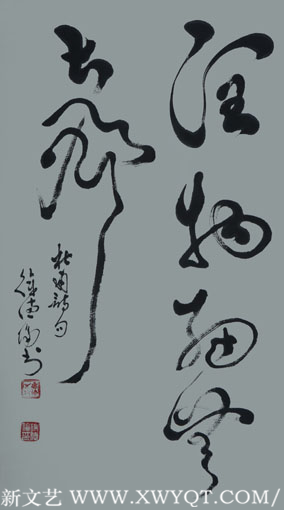 润物细无
声
杜甫诗句
新文艺 WWW.XWYQT.COM/